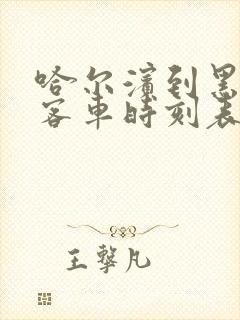 哈尔滨到黑
客车时刻表
王擊凡